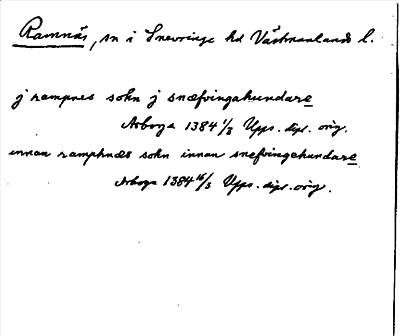 Ramnäs, sn i Snevringe hd Västmanlands l.
j rampnes sokn j snæfringahundare
Arboga 1384 1/3 Upps. dipl. orig.
innan ramphnæs sokn innan snefringehundare
Arboga 1384 16/3 Upps. dipl. orig.